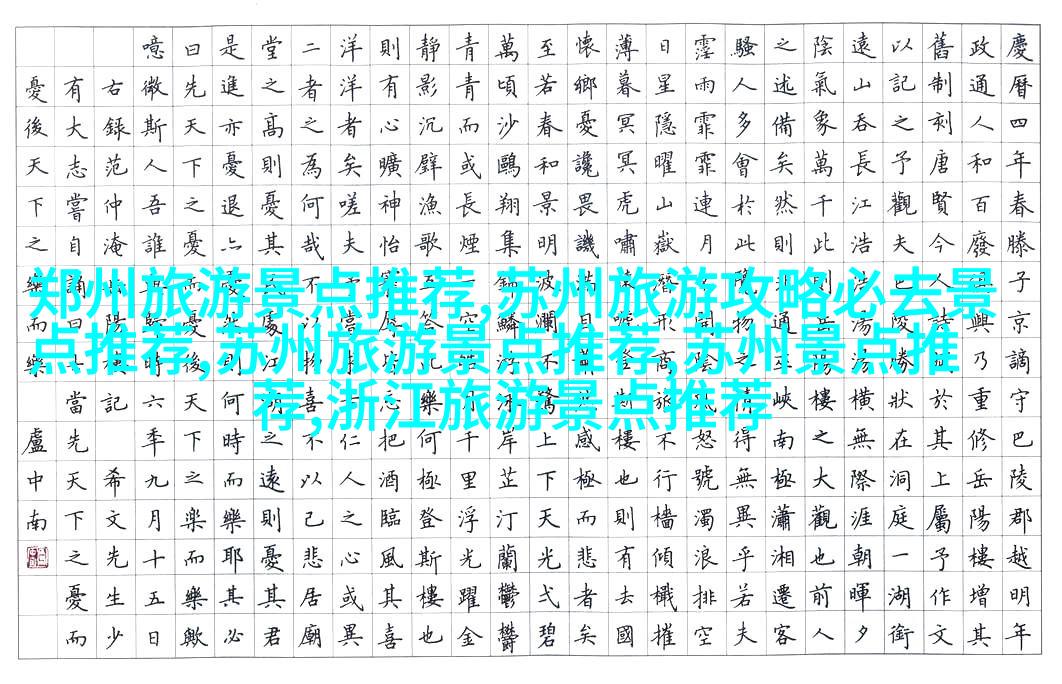 郑州旅游景点推荐,苏州旅游攻略必去景
点推荐,苏州旅游景点推荐,苏州景点推
荐,浙江旅游景点推荐
慶曆四年春滕子京謫守巴陵郡越明年
政通人和百廢具興乃重修岳陽樓增其
舊制刻唐賢今人詩於其上屬予作文
以記之予觀夫陵勝狀在洞庭一湖銜
遠山吞長江浩浩湯湯橫無際涯朝暉夕
陰氣象萬千此則岳陽樓之大觀也前人
之述備矣然則北通巫峽南極瀟湘遷客
騷人多會於此覽物之情得無異乎若夫
霪雨霏霏連月開陰怒號濁浪排空
日星隱曜山嶽潛形商旅不行檣傾檝摧
薄暮冥冥虎嘯猿啼登斯樓也則有去國
懷鄉憂讒畏譏滿目感極而悲者矣
至若春和景明波瀾不驚上下天光弌碧
萬頃沙鷗翔集鱗游岸芷汀蘭鬱鬱
青青而或長煙一空皓月千里浮光躍金
靜影沉璧漁歌互答此樂何極登斯樓也
則有心曠神怡寵辱皆忘把酒臨風其喜
洋洋者矣嗟夫予嘗仁人之心或異
二者之為何哉不以物喜不以己悲居廟
堂之高則憂其民處江湖之遠則憂其君
是進亦憂退亦憂然則何時而樂耶其必
曰先天下之憂而憂後天下之樂而樂歟
噫微斯人吾誰與歸時六年九月十五日
右錄范仲淹岳陽樓記希文先生少
有大志嘗自誦曰士當先天下之憂而
憂後天下之樂而樂盧中南